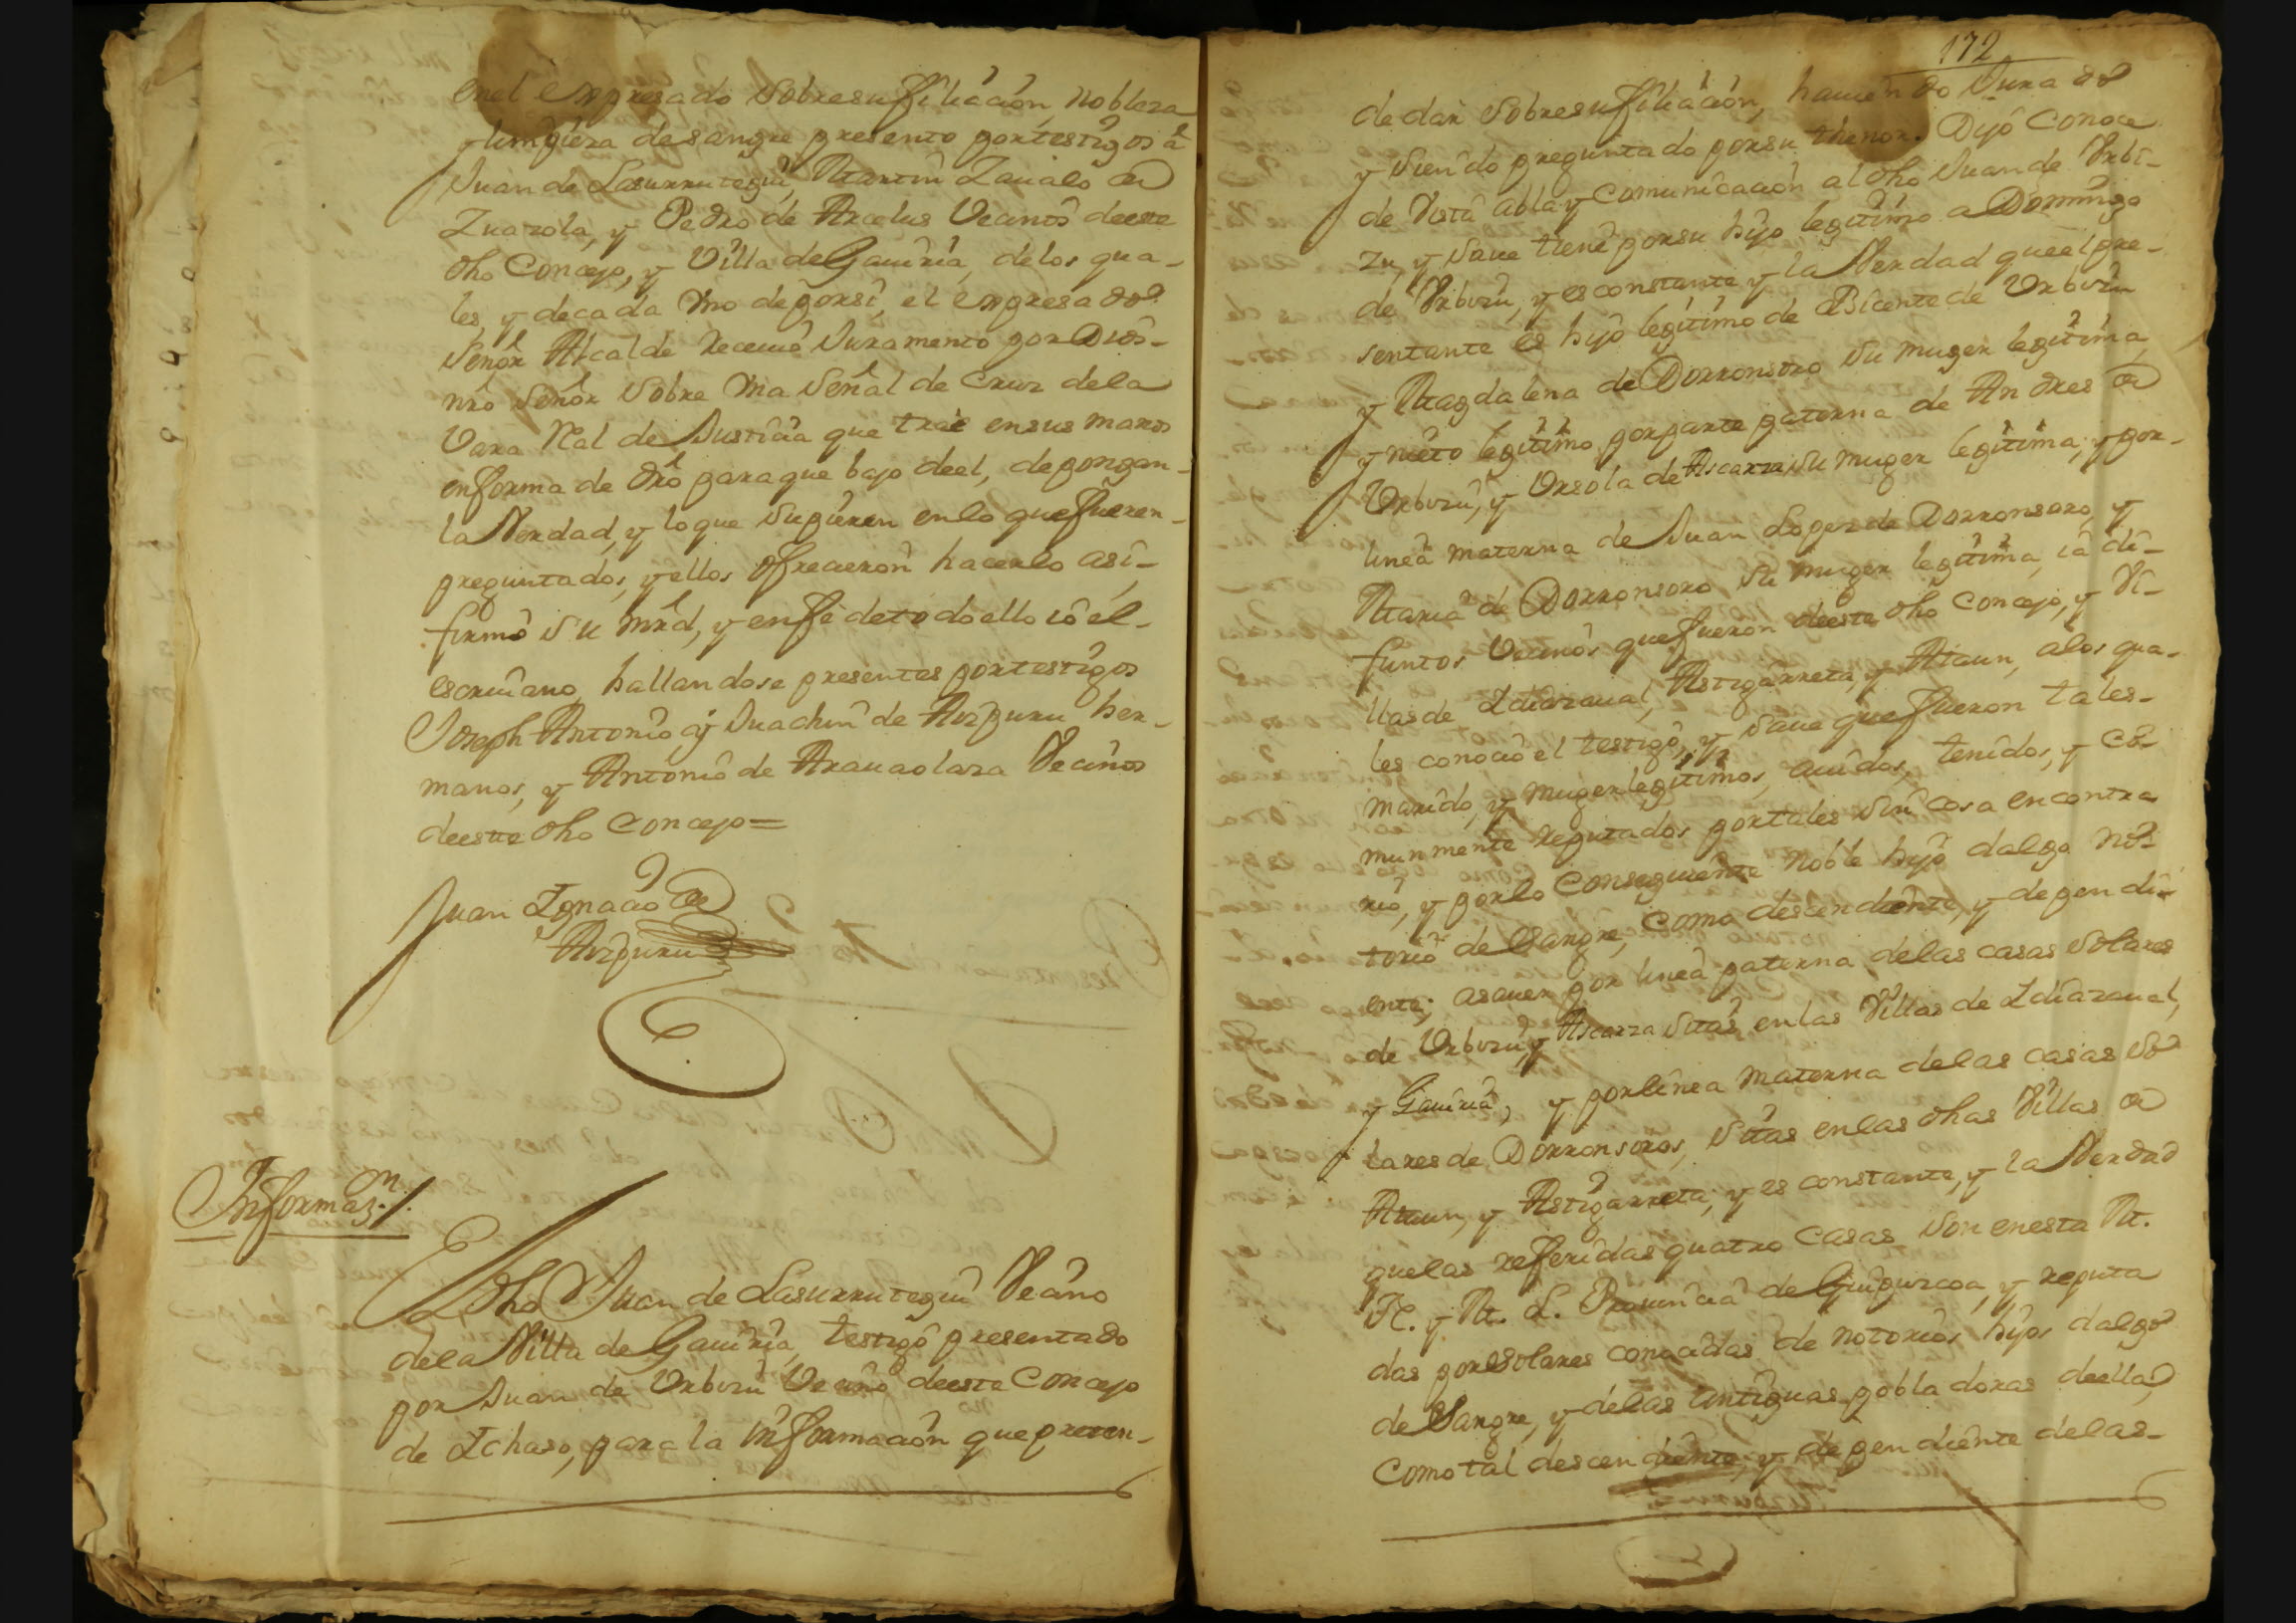 enel expresado sobresufiliación, nobleza
y limpieza desangre presento portestigos á
Juan de Lasurrutegui, Martin Zavalo de
Zuazola, y Pedro de Arcelus Vecinos deeste
dho Concejo, y Villa de Gaviria, delos qua-
les, y decada vno deporsi, el expresado
Señor Alcalde Recevió Juramento por Dios
nro Señor sobre vna señal de Cruz dela
Vara Real de Justicia que trae ensus manos
enforma de dro paraque bajo deel, depongan
la Verdad, y loque supieren enlo quefueren
preguntados, y ellos ofrecieron hacerlo asi-
firmó su mrd, y enfé detodoello ió el
escrivano, hallandose presentes portestigos
Joseph Antonio y Juachin de Aizpuru her-
manos, y Antonio de Aravaolaza Vecinos
deeste dho Concejo=
Juan Ignacio de
Aizpuru
Informazn./.
El dho Juan de Lasurrutegui Vecino
dela Villa de Gaviria, testigo presentado
por Juan de Vrbizu Vecino deeste Concejo
de Ichaso, para la informacion que preten-
172
de dar sobresufiliación, haviendo Jurado
y siendo preguntado porsu thenor. Dijó Conoce
de Vista abla y Comunicación al dho Juan de Vrbi-
zu, y save tiene porsu hijo legitimo a Domingo
de Vrbizu, y es constante y la Verdad queel pre-
sentante és hijo legitimo de Bicente de Vrbizu
y Magdalena de Dorronsoro su muger legitima,
y nieto legitimo porparte paterna de Andres de
Vrbizu, y Vrsola de Ascarza su muger legitima, y por-
linea materna de Juan Lopez de Dorronsoro, y
Maria de Dorronsoro, su muger legitima, iá di-
funtos Vecinos quefueron deeste dho Concejo, y Vi-
llas de Idiazaval, Astigarreta, y Ataun, alos qua-
les conoció el testigo, y save quefueron tales-
marido, y mugerlegitimos, avidos, tenidos, y Co-
munmente reputados portales sin cosa encontra
rio, y porlo Consequiente noble hijo dalgo no-
torio de sangre, como descendiente, y dependi-
ente; asaver por linea paterna delas casas solares
de Vrbizu, y Ascarza sitas enlas Villas de Idiazaval,
y Gaviria; y porlinea materna delas casas so
lares de Dorronsoros, sitas enlas dhas Villas de
Ataun, y Astigarreta; y es constante, y la Verdad
quelas referidasquatro Casas son enesta M.
N. y M. L. Provincia de Guipuzcoa, y reputa
das porsolares conocidas de notorios hijos dalgo
de Sangre, y delas antiguas pobladoras deella,
Comotal descendiente, y dependiente delas-